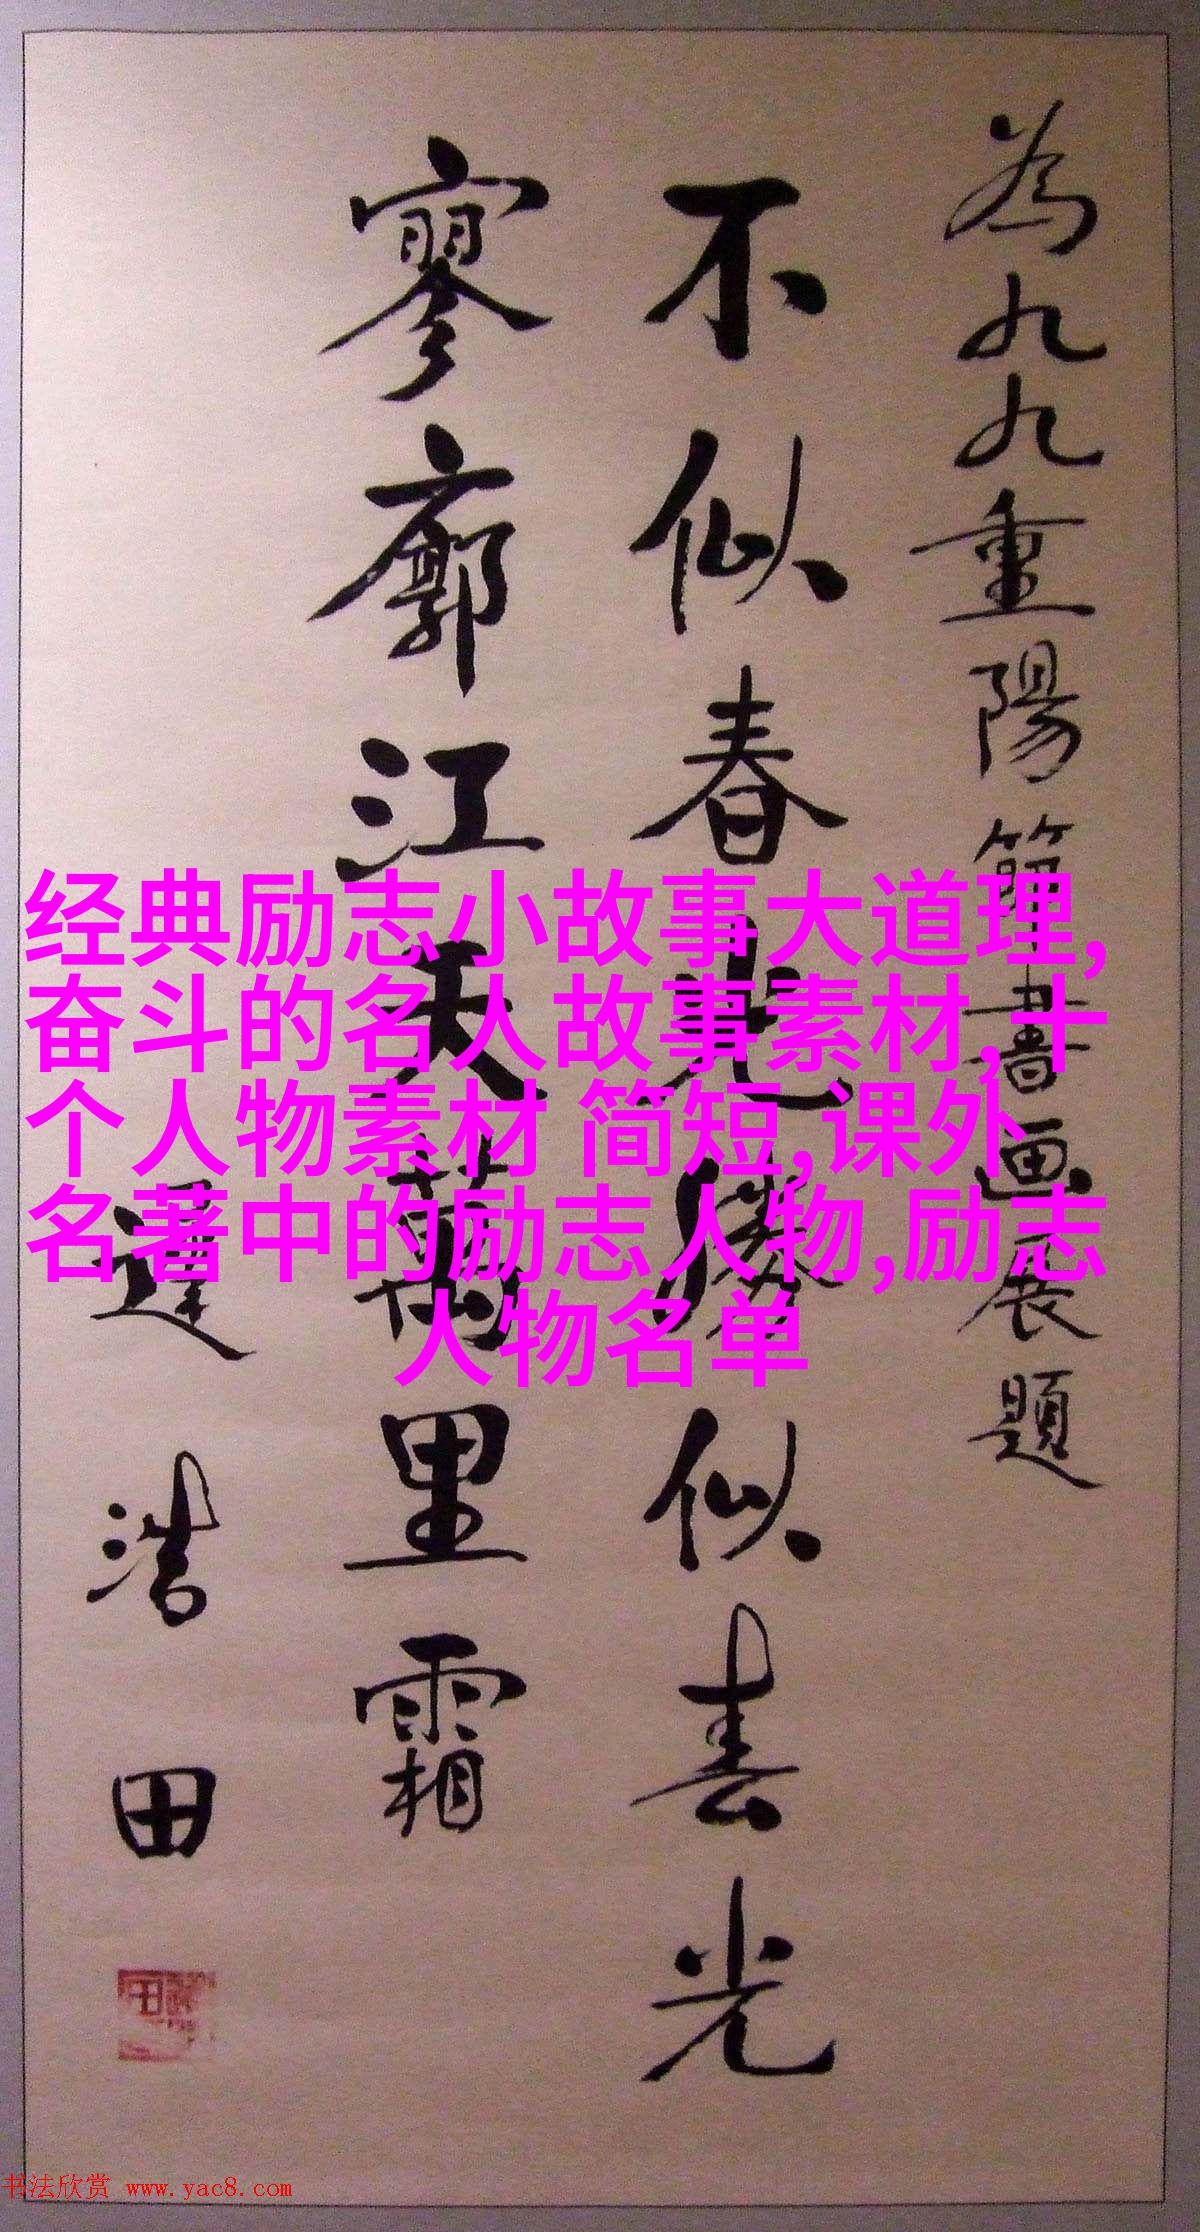 為九九重陽節書画展題
不似春光勝似春光
寥廓江天萬里霜
遲浩田
经典励志小故事大道理,
奋斗的名人故事素材,十
个人物素材 简短,课外
名著中的励志人物,励志
人物名单
书法欣赏 www.yac8.com